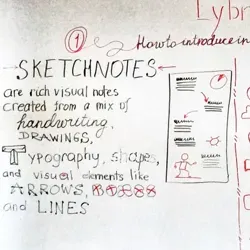 Lybr
1
How to introduce in
SKETCHNOTES
are rich visual notes
created from a mix of
handwriting,
DRAWINGS,
Typography, shapes,
and visual elements like
ARROWS,
and LINES